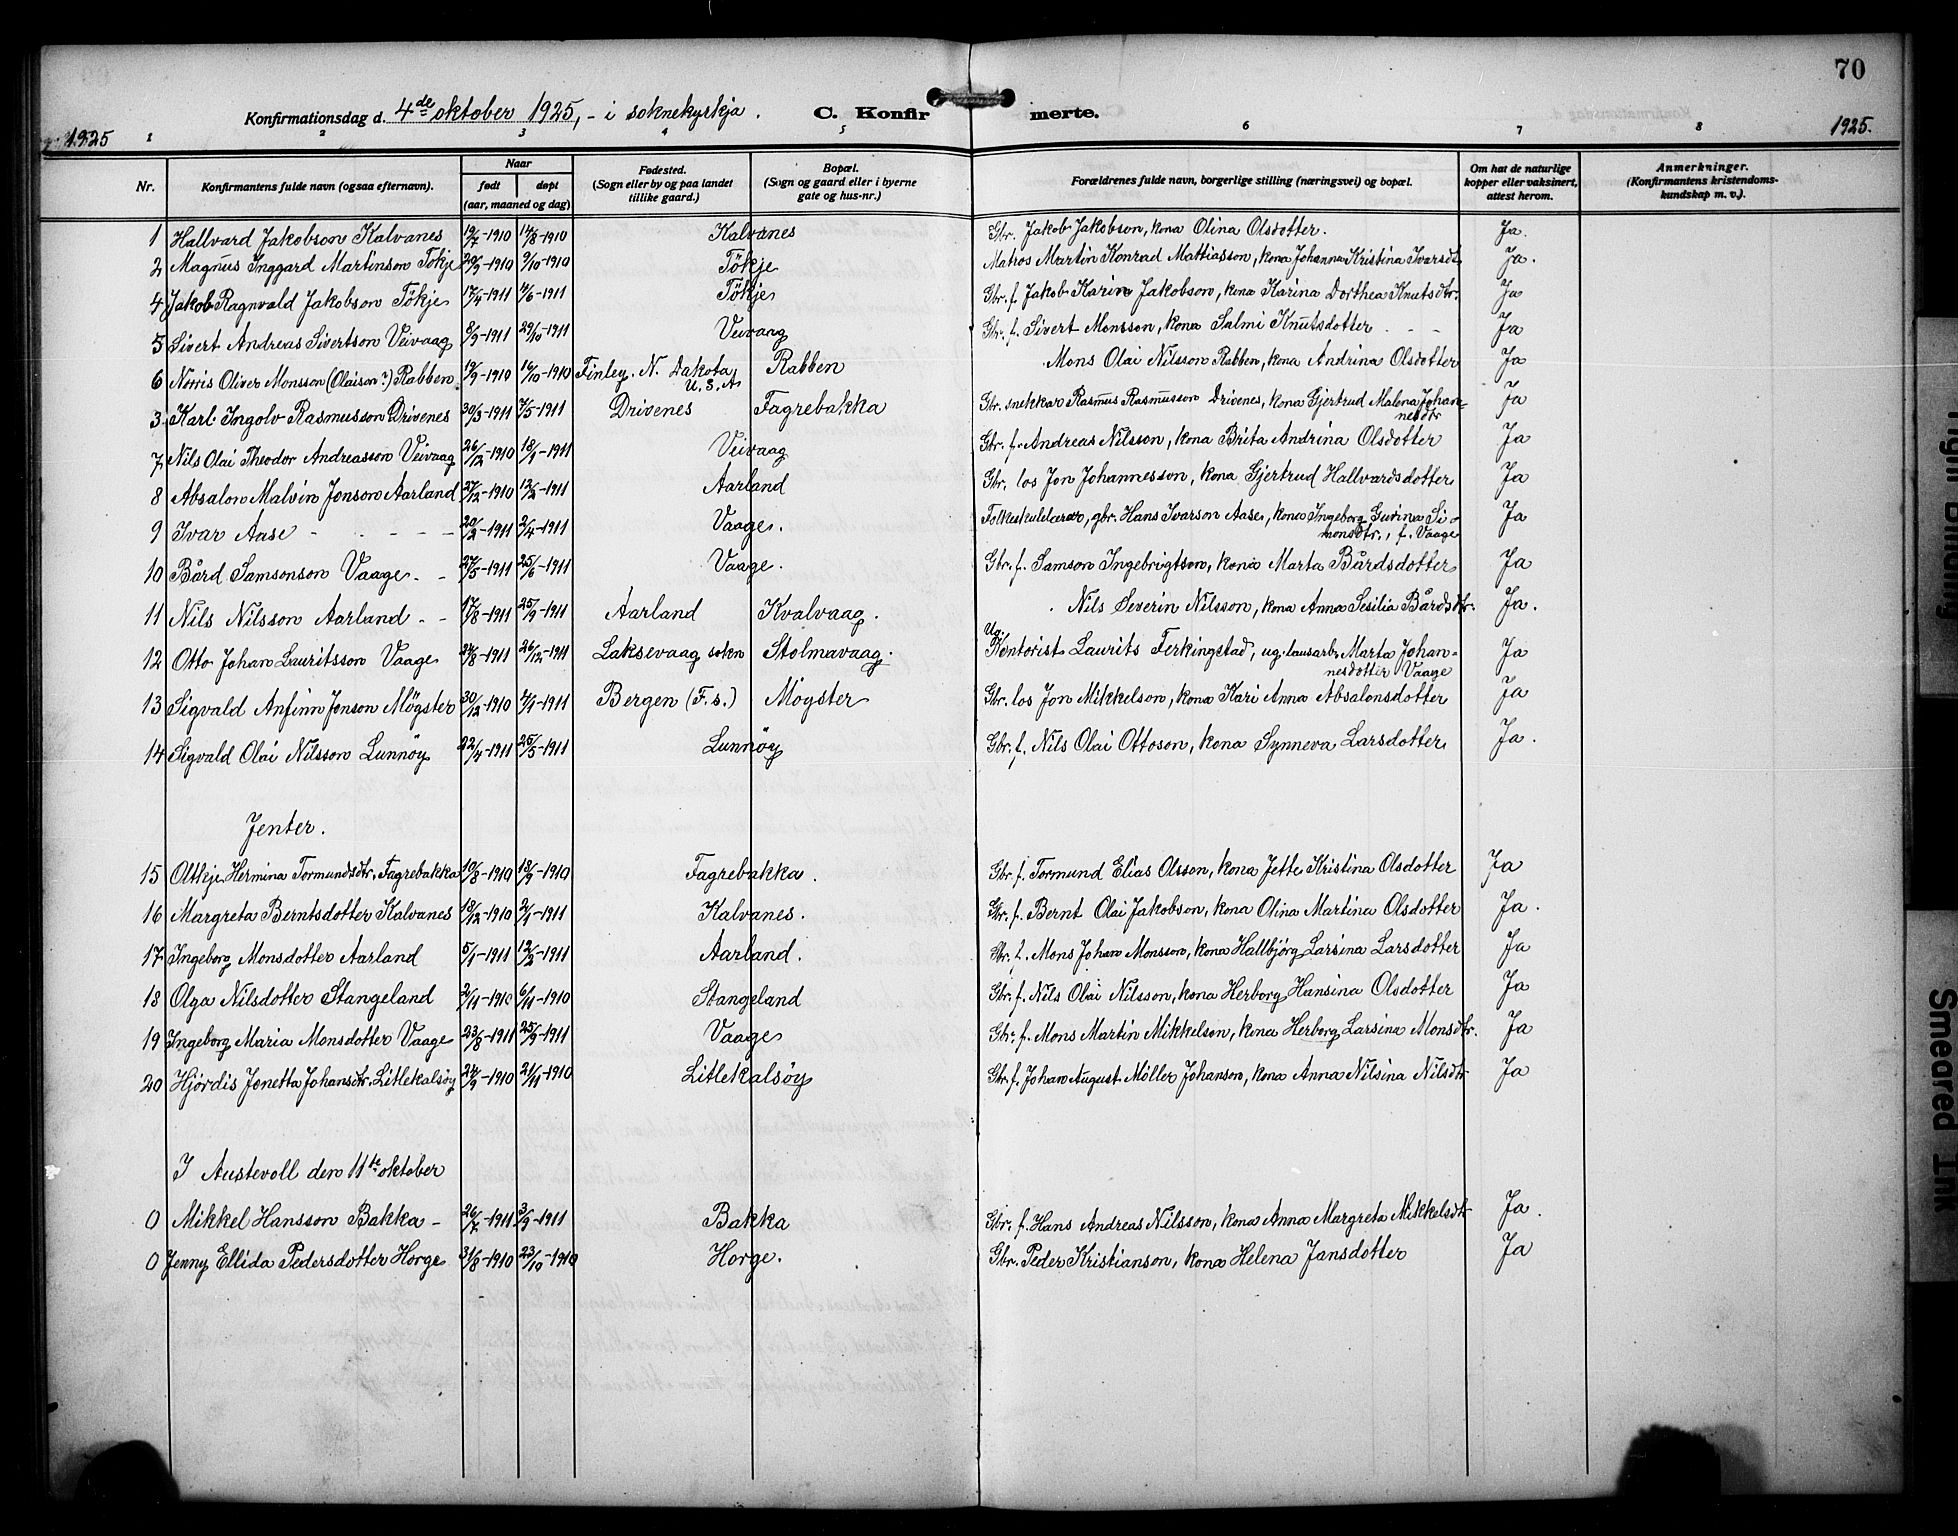 70
Konfirmationsdag d. 4de oktober 1925, - i soknekyrkja. C. Konfirmerte.
1925 1 2 3 4 5 6 7 8 1925.
Nr. Konfirmantens fulde navn (ogsaa efternavn). Naar født døpt (aar, maaned og dag) Fødested. (Sogn eller by og paa landet tillike gaard.) Bopæl. (Sogn og gaard eller i byerne gate og hus-nr.) Forældrenes fulde navn, borgerlige stilling (næringsvei) og bopæl. Om hat de naturlige kopper eller vaksinert, attest herom. Anmerkninger. (Konfirmantens kristendomskundskap m. v.).
1 Hallvard Jakobson Kalvanes 19/7-1910 14/8-1910 Kalvanes Gbr. Jakob Jakobson, kona Olina Olsdotter. Ja.
2 Magnus Inggard Martinson Tökje 20/9-1910 9/10-1910 Tökje Matros Martin Konrad Mattiasson, kona Johanna Kristina Ivarsdt. Ja.
4 Jakob Ragnvald Jakobson Tökje 17/4-1911 4/6-1911 Tökje Gbr. f. Jakob Karin Jakobson, kona Karina Dorthea Knutsdtr. Ja
5 Sivert Andreas Sivertson Veivaag 8/9-1911 29/10-1911 Veivaag Gbr. f. Sivert Monsson, kona Salmi Knutsdotter - - Ja
6 Norris Oliver Monsson (Olaison?) Rabben 19/9-1910 16/10-1910 Finley, N. Dakota, U.S.A. Rabben Mons Olai Nilsson Rabben, kona Andrina Olsdotter Ja
3 Karl Ingolv Rasmusson Drivenes 30/3-1911 7/5-1911 Drivenes Fagrebakka Gbr. snekkar Rasmus Rasmusson Drivenes, kona Gjertrud Malena Johannesdtr Ja
7 Nils Olai Theodor Andreasson Veivaag 26/12-1910 18/1-1911 Veivaag Gbr. f. Andreas Nilsson, kona Brita Andrina Olsdotter Ja
8 Absalon Malvin Jonson Aarland 27/12-1910 12/2-1911 Aarland Gbr. los Jon Johannesson, kona Gjertrud Hallvardsdotter Ja
9 Ivar Aase - - - - 20/2-1911 2/4-1911 Vaage. Folkeskulelærar, gbr. Hans Ivarson Aase, kona Ingeborg Gurina Simonsdtr., f. Vaage Ja
10 Bård Samsonson Vaage - - 27/5-1911 25/6-1911 Vaage. Gbr. f. Samson Ingebrigtson, kona Marta Bårdsdotter Ja
11 Nils Nilsson Aarland - - 17/8-1911 25/9-1911 Aarland Kvalvaag. Nils Severin Nilsson, kona Anna Sesilia Bårdsdtr. Ja.
12 Otto Johan Lauritsson Vaage 24/8-1911 26/12-1911 Laksevaag sokn Stolmavaag. Ug. Kontorist Laurits Ferkingstad, ug. lausarb. Marta Johannesdotter Vaage Ja
13 Sigvald Anfinn Jonson Møgster 30/12-1910 4/1-1911 Bergen (F.s.) Møgster Gbr. los Jon Mikkelson, kona Kari Anna Absalonsdotter Ja
14 Sigvald Olai Nilsson Lunnöy 22/4-1911 25/5-1911 Lunnöy Gbr. f. Nils Olai Ottoson, kona Synneva Larsdotter Ja.
Jenter.
15 Oltkje Hermina Tormundsdtr. Fagrebakka 10/8-1910 18/9-1910 Fagrebakka. Gbr. f. Tormund Elias Olsson, kona Jette Kristina Olsdotter Ja
16 Margreta Berntsdotter Kalvanes 18/12-1910 2/1-1911 Kalvanes. Gbr. f. Bernt Olai Jakobson, kona Olina Martina Olsdotter Ja.
17 Ingeborg Monsdotter Aarland 5/1-1911 12/2-1911 Aarland. Gbr. f. Mons Johan Monsson, kona Hallbjörg Larsina Larsdotter Ja
18 Olga Nilsdotter Stangeland 2/11-1910 6/11-1910 Stangeland Gbr. f. Nils Olai Nilsson, kona Herborg Hansina Olsdotter Ja
19 Ingeborg Maria Monsdotter Vaage 23/8-1911 25/9-1911 Vaage Gbr. f. Mons Martin Mikkelson, kona Herborg Larsina Monsdtr. Ja
20 Hjördis Jonetta Johansdtr. Litlekalsöy 24/9-1910 21/11-1910 Litlekalsöy Gbr. f. Johan August Møller Johanson, kona Anna Nilsina Nilsdtr Ja
I Austevoll den 11te oktober
0 Mikkel Hansson Bakka - 26/7-1911 3/9-1911 Bakka Gbr. f. Hans Andreas Nilsson, kona Anna Margreta Mikkelsdtr Ja.
0 Jenny Ellida Pedersdotter Horge 31/8-1910 23/10-1910 Horge. Gbr. Peder Kristianson, kona Helena Jansdotter Ja
Tight Binding
Smeared Ink